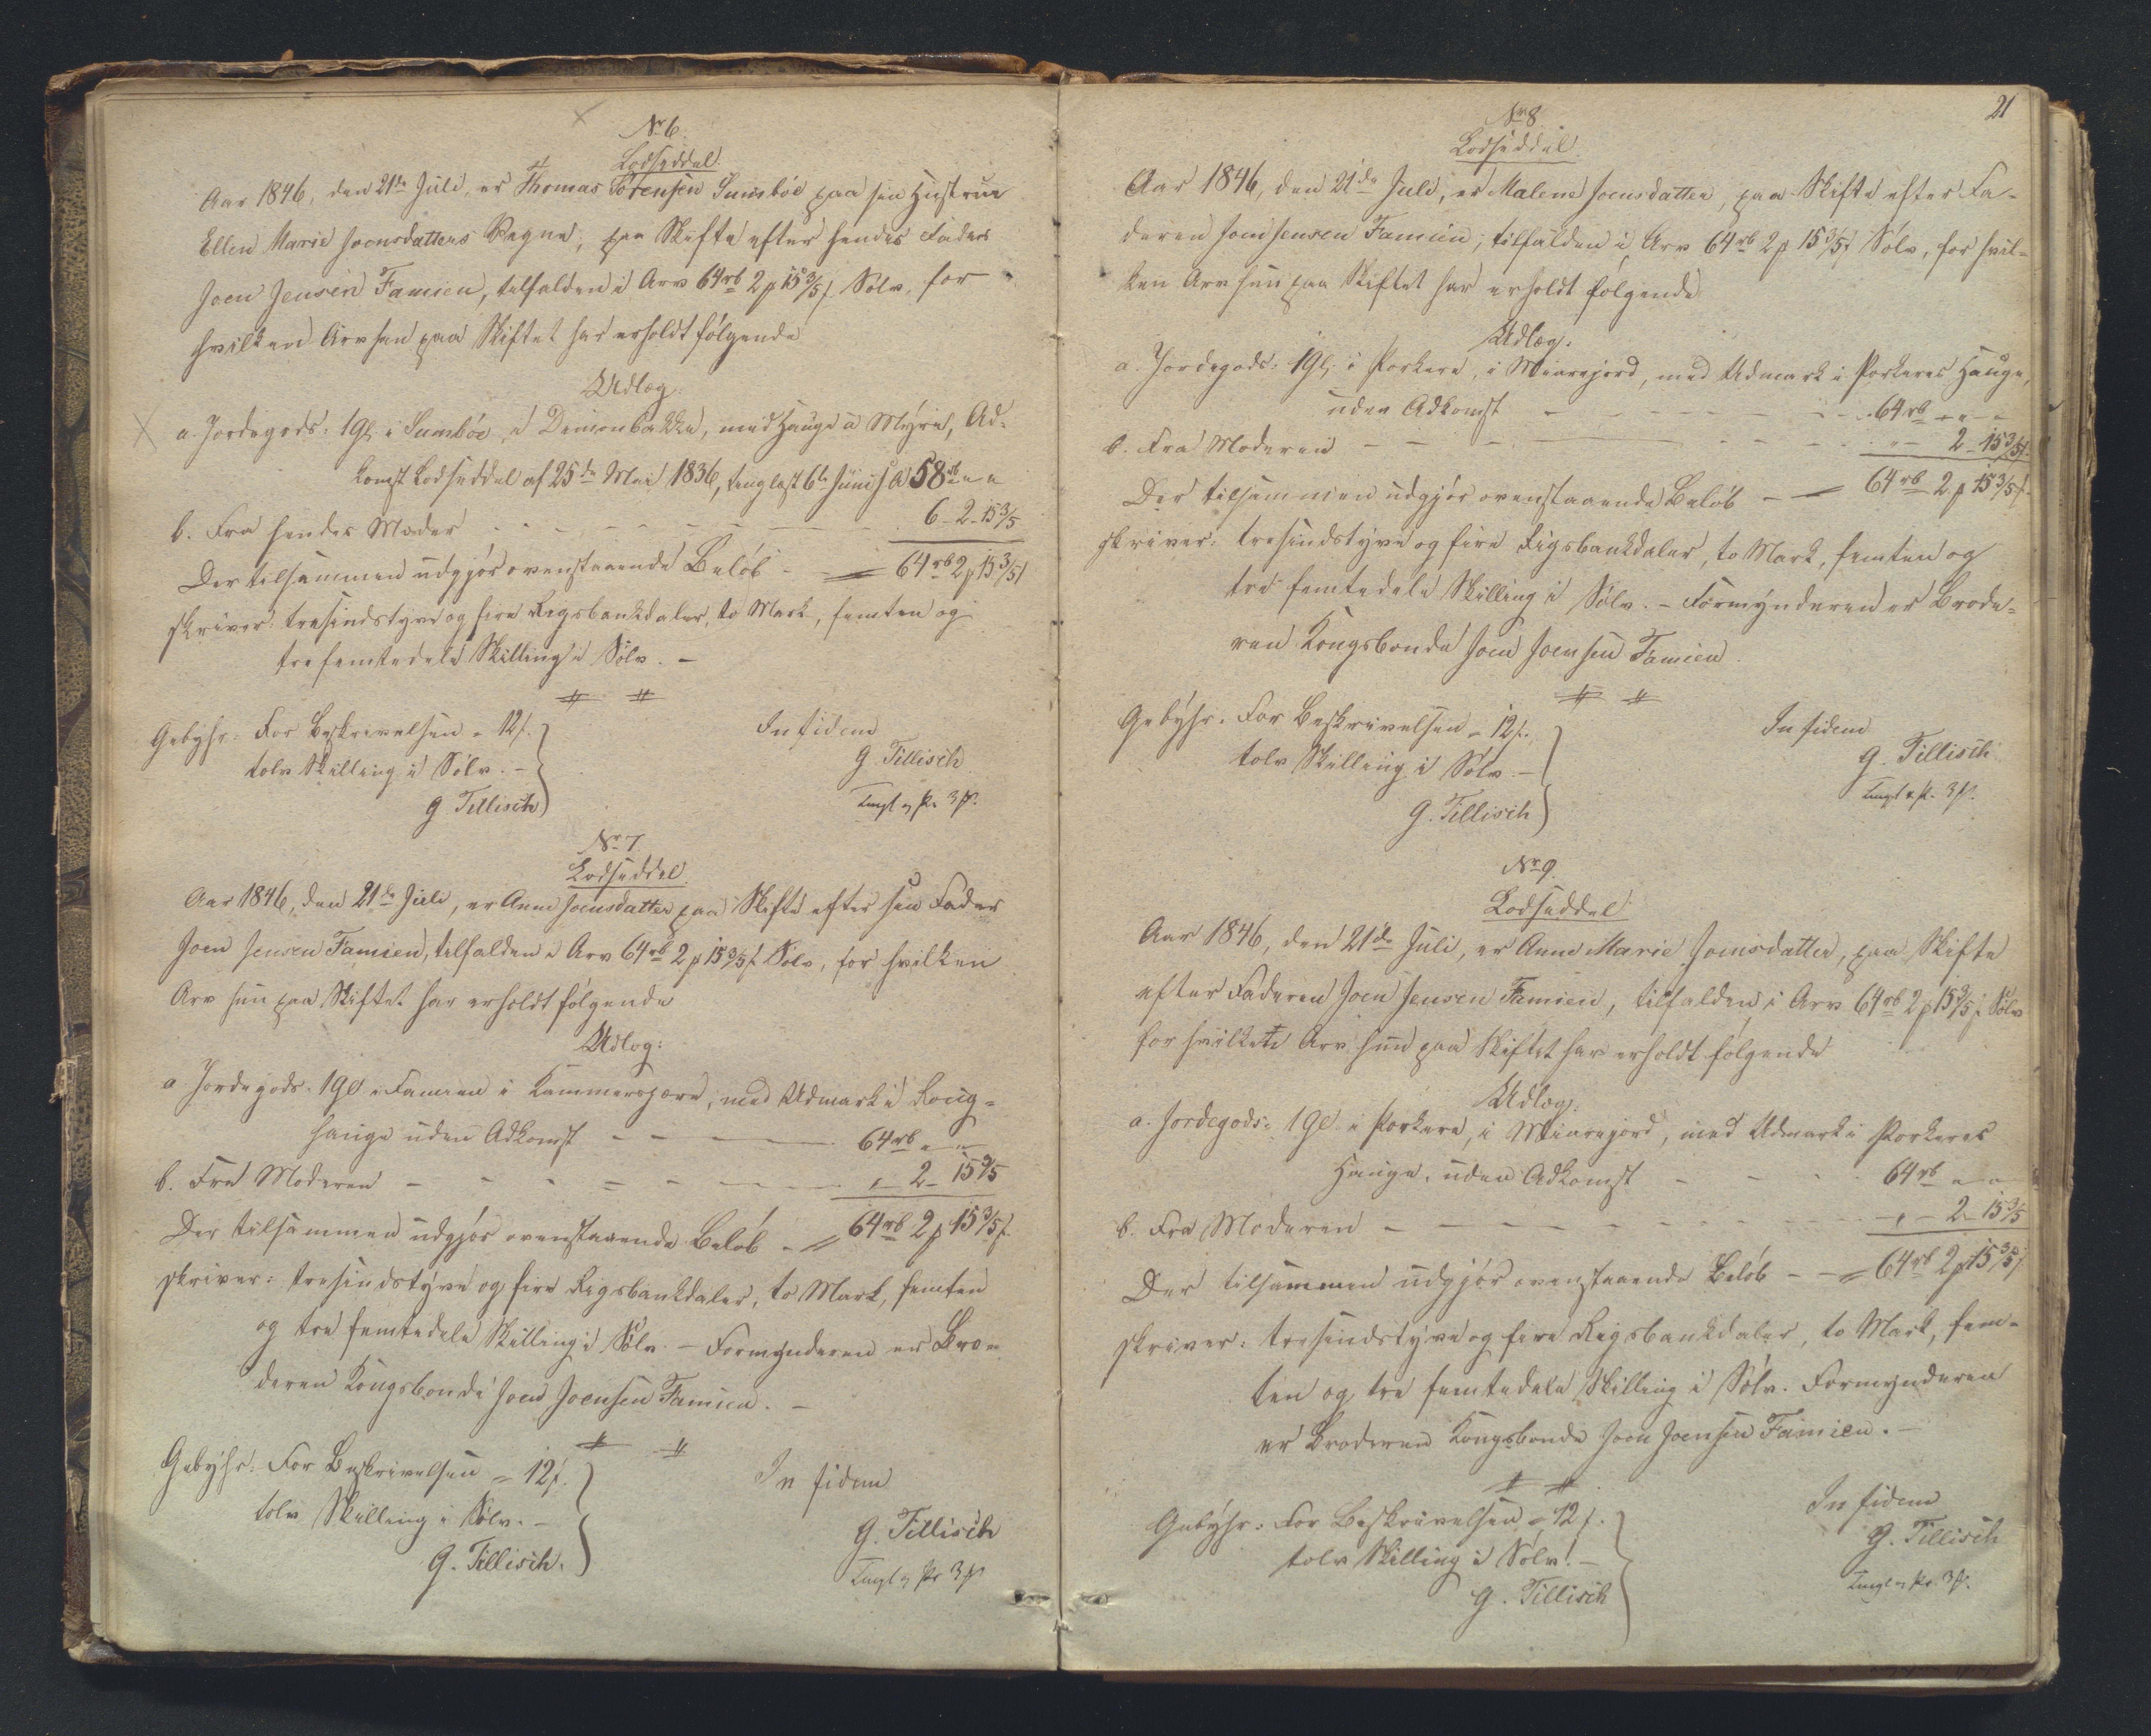 No 6.
Lodseddel.
Aar 1846, den 21de Juli, er Thomas Sørensen Sumbøe paa sin Hustrue
Ellen Marie Joensdatters Vegne, paa Skifte efter hendes Fader
Joen Jensen Famien, tilfalden i Arv 64rb 2 15 3/5 Sølv, for
hvilken Arv han paa Skiftet har erholdt følgende
Udlæg.
a. Jordegods: 1 Gl. i Sumbøe, i Dimonbakke, med Hauge i Myre, Ad-
komst Lodseddel af 25de Mai 1836, tinglæst 6te Juni 58rb " "
b. Fra hendes Moder - - - 6 - 2 - 15 3/5
Der tilsammen udgjør ovenstaaende Beløb - 64rb 2 15 3/5
skriver: tresindstyve og fire Rigsbankdaler, to Mark, femten og
tre femtedele Skilling i Sølv. -
Gebyhr: For Beskrivelsen = 12 In fidem
tolv Skilling i Sølv. - G. Tillisch
G. Tillisch
No 7.
Lodseddel.
Aar 1846, den 21de Juli, er Anne Joensdatter paa Skifte efter sin Fader
Joen Jensen Famien, tilfalden i Arv 64rb 2 15 3/5 Sølv, for hvilken
Arv hun paa Skiftet har erholdt følgende
Udlæg:
a Jordegods: 1 Gl. i Famien i med Udmark i
hauge uden Adkomst - - - 64rb " "
b. Fra Moderen - - - " - 2 - 15 3/5
Der tilsammen udgjør ovenstaaende Beløb - 64rb 2 15 3/5
skriver: tresindstyve og fire Rigsbankdaler, to Mark, femten
og tre femtedele Skilling i Sølv. - Formynderen er Bro-
deren Kongsbonde Joen Joensen Famien. -
Gebyhr: For Beskrivelsen = 12 In fidem
tolv Skilling i Sølv. - G. Tillisch
G. Tillisch.
21
No 8.
Lodseddel.
Aar 1846, den 21de Juli, er Malene Joensdatter, paa Skifte efter Fa-
deren Joen Jensen Famien, tilfalden i Arv 64rb 2 15 3/5 Sølv, for hvil-
ken Arv hun paa Skiftet har erholdt følgende
Udlæg.
a. Jordegods: 1 Gl. i Porkere, i Miaregjerd, med Udmark i Porkeres Hauge,
uden Adkomst - - - 64rb " "
b. Fra Moderen - - - " - 2 - 15 3/5
Der tilsammen udgjør ovenstaaende Beløb - 64rb 2 15 3/5
skriver: tresindstyve og fire Rigsbankdaler, to Mark, femten og
tre femtedele Skilling i Sølv. - Formynderen er Brode-
ren Kongsbonde Joen Joensen Famien.
Gebyhr: For Beskrivelsen = 12 In fidem
tolv Skilling i Sølv. - G. Tillisch
G. Tillisch
No 9.
Lodseddel
Aar 1846, den 21de Juli, er Anne Marie Joensdatter, paa Skifte
efter Faderen Joen Jensen Famien, tilfalden i Arv 64rb 2 15 3/5 Sølv
for hvilket Arv hun paa Skiftet har erholdt følgende
Udlæg.
a. Jordegods: 1 Gl. i Porkere, i Miaregjerd, med Udmark i Porkeres
Hauge, uden Adkomst - - - 64rb " "
b. Fra Moderen - - - " - 2 - 15 3/5
Der tilsammen udgjør ovenstaaende Beløb - - 64rb 2 15 3/5
skriver: tresindstyve og fire Rigsbankdaler, to Mark, fem-
ten og tre femtedele Skilling i Sølv. Formynderen
er Broderen Kongsbonde Joen Joensen Famien. -
Gebyhr: For Beskrivelsen = 12 In fidem
tolv Skilling i Sølv. - G. Tillisch
G. Tillisch